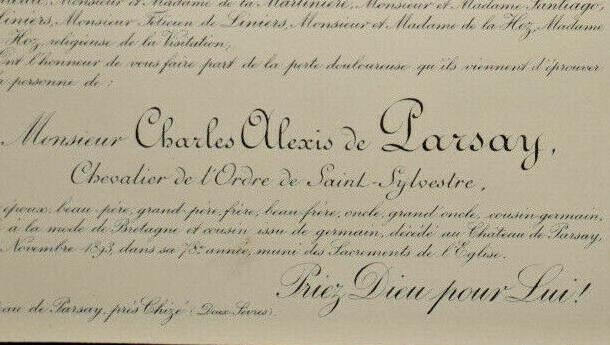 Monsieur et Madame de la Martinière, Monsieur et Madame Santiago,
Liniers, Monsieur Félicien de Liniers, Monsieur et Madame de la Hoz, Madame
Hoz, religieuse de la Visitation,
Ont l'honneur de vous faire part de la perte douloureuse qu'ils viennent d'éprouver
la personne de :
Monsieur Charles Alexis de Parsay,
Chevalier de l'Ordre de Saint-Sylvestre,
époux, beau-père, grand-père, frère, beau-frère, oncle, grand'oncle, cousin-germain,
à la mode de Bretagne et cousin issu de germain, décédé au Château de Parsay,
Novembre 1893, dans sa 78e année, muni des Sacrements de l'Eglise.
Priez Dieu pour Lui!
eau de Parsay, près Chizé (Deux-Sèvres).